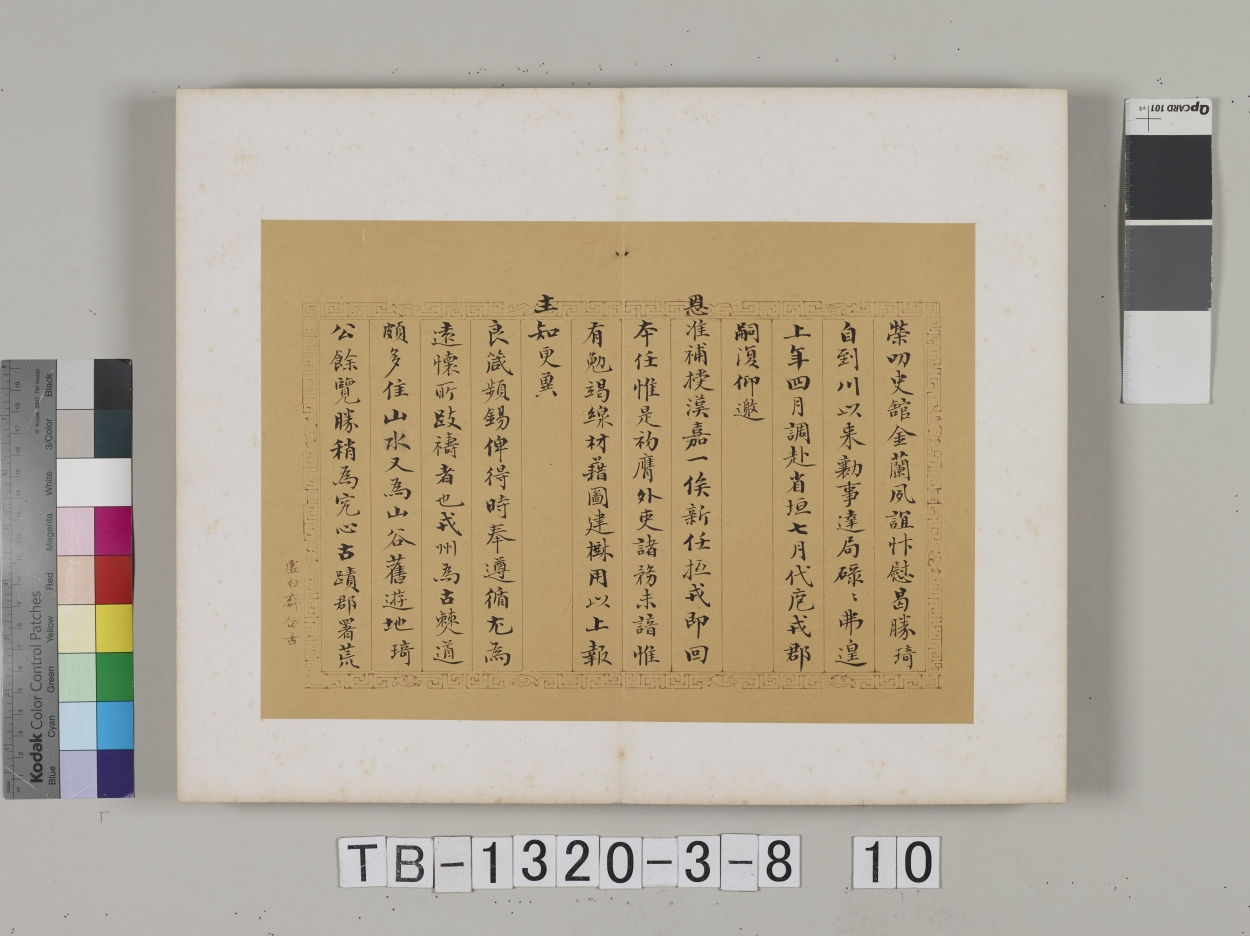 榮叨史館金蘭夙誼忭慰曷勝琦
自到川以来勷事達局碌〻弗遑
上年四月調赴省垣七月代庖戎郡
嗣復仰邀
恩准補授漢嘉一俟新任抵戎即回
本任惟是初膺外吏諸務未諳惟
有勉竭線材藉圖建樹用以上報
主知更冀
良箴頻錫俾得時奉遵循尤為
遠懷所跂禱者也戎州為古僰道
頗多佳山水又為山谷舊遊地琦
公餘覽勝稍為究心古蹟郡署荒
虛白齋仿古
TB-1320-3-8 10
QPCARD 101 v4
© Kodak
Kodak Color Control Patches
Blue Cyan Green Yellow Red Magenta White 3/Color Black